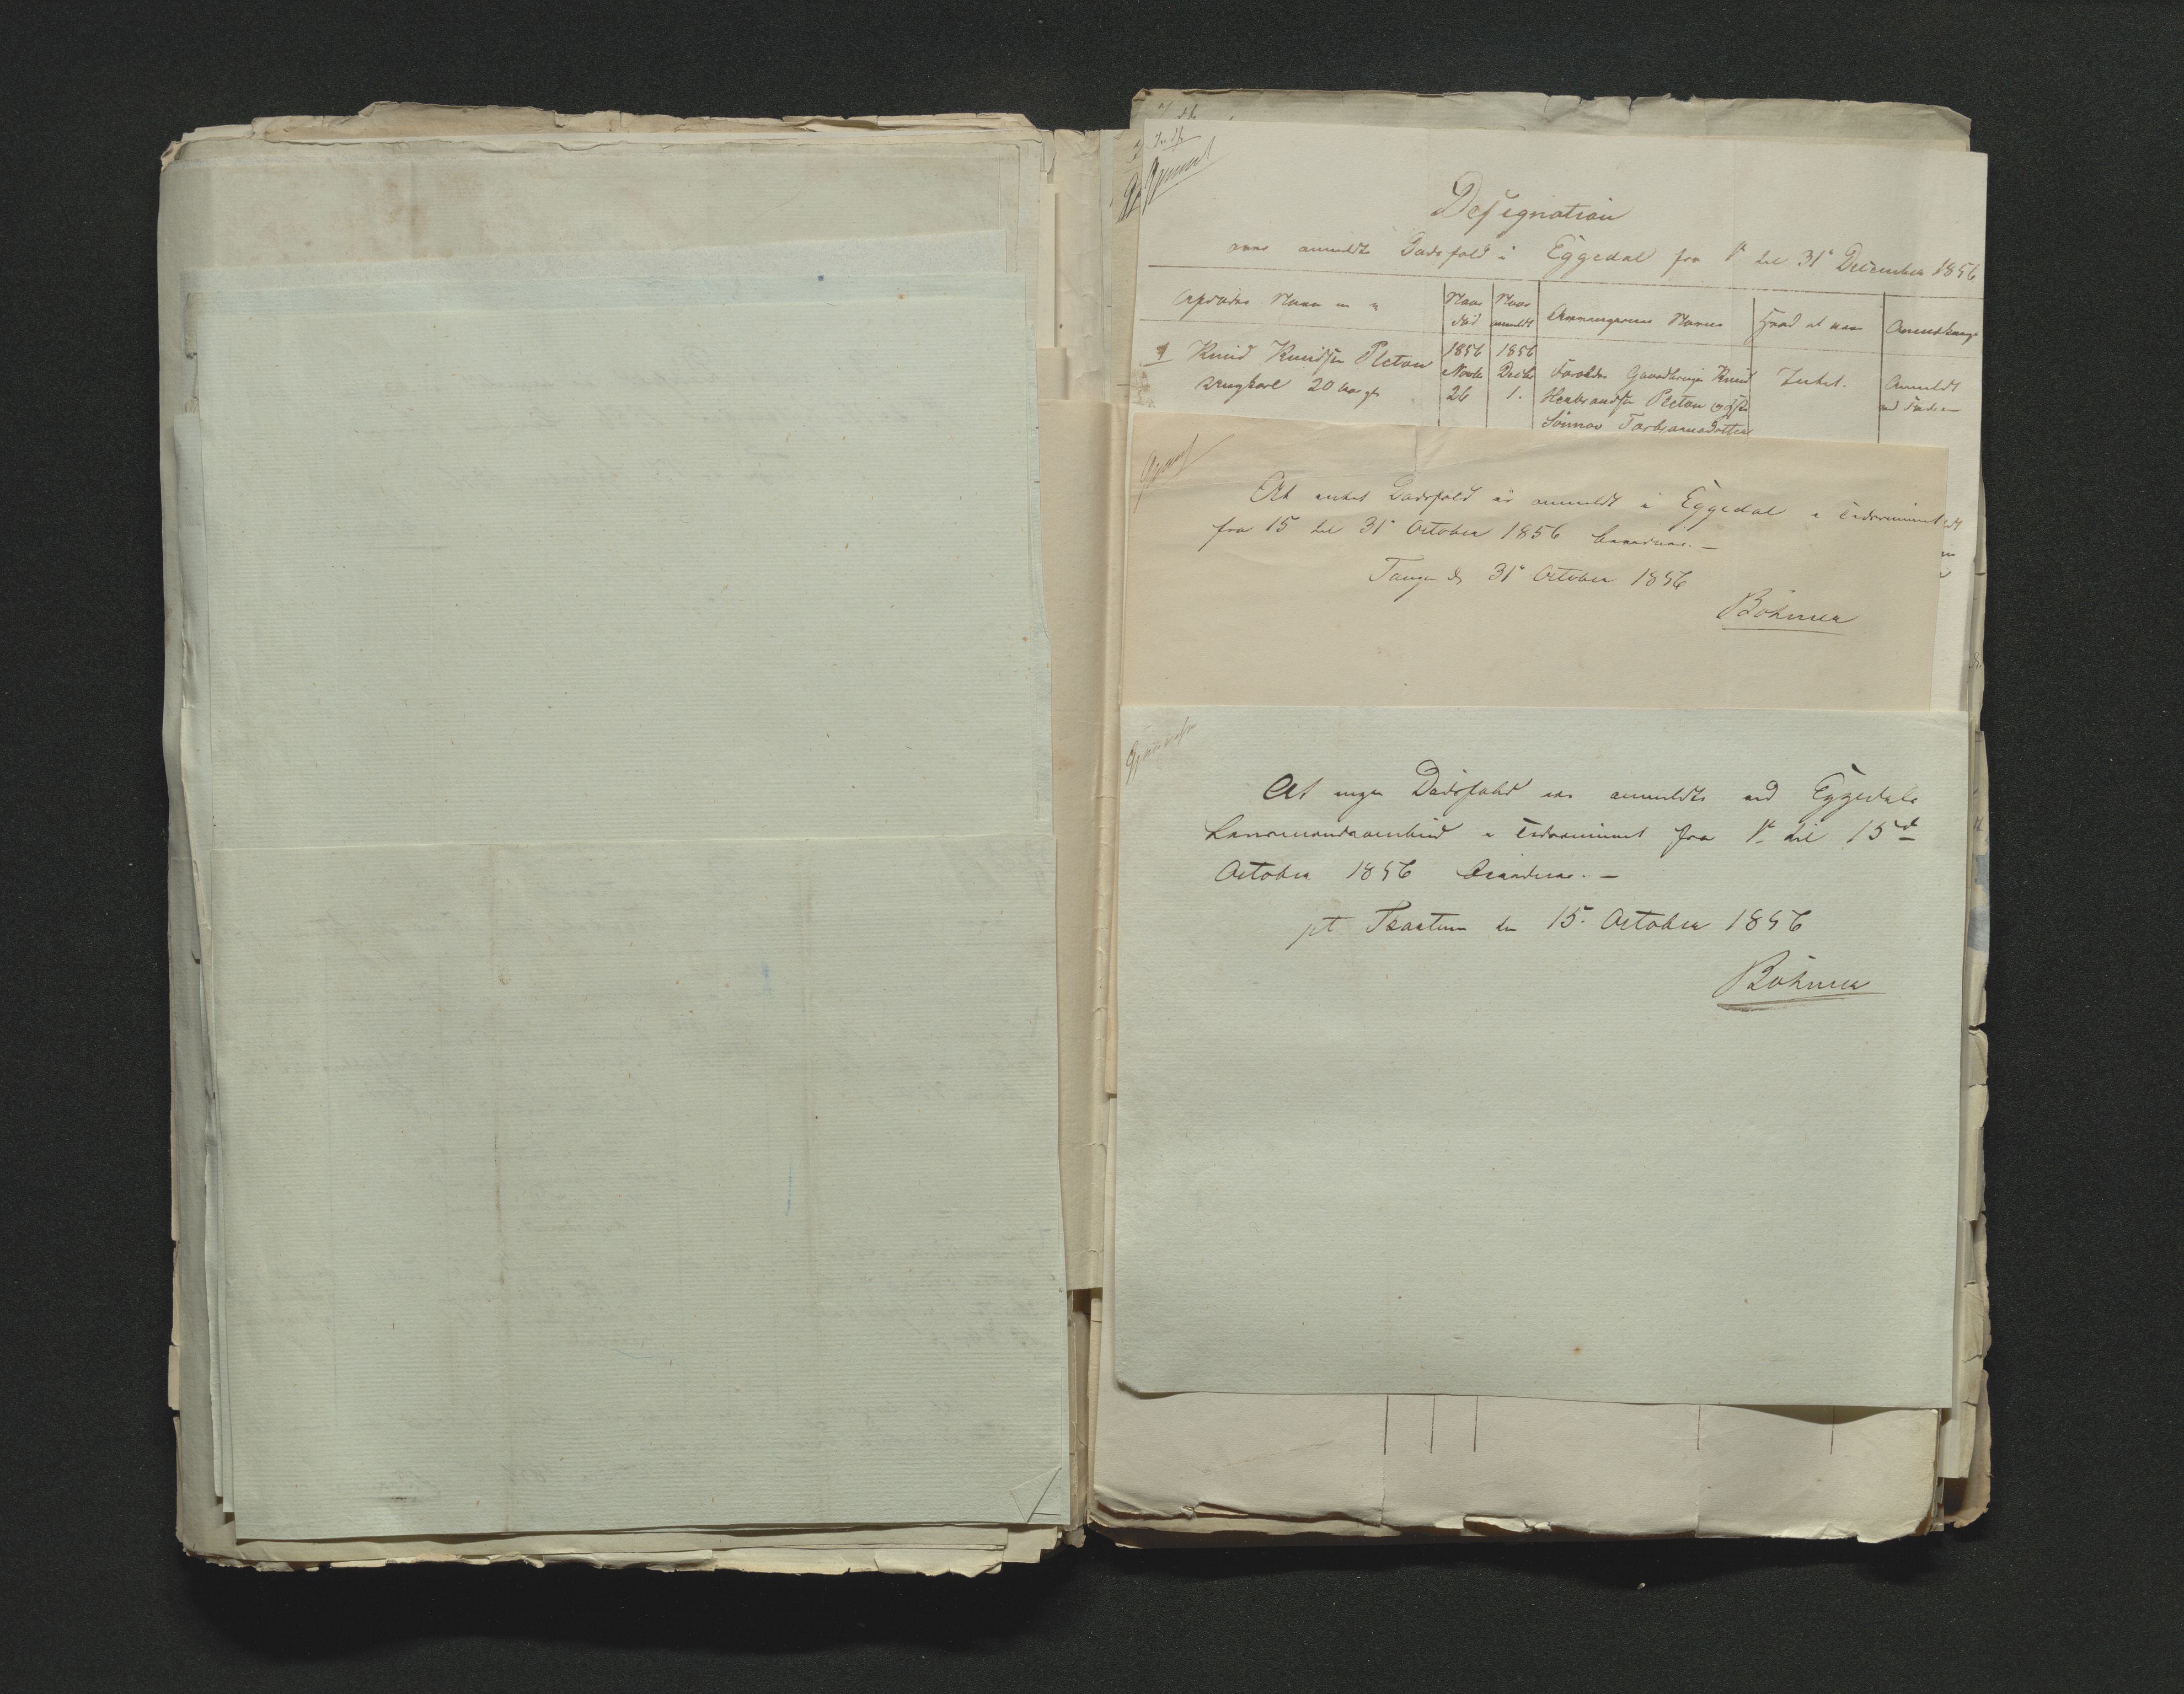 Indf
Gjennet
Designation
over anmeldte Dødsfald i Eggedal fra 1te til 31te December 1856
Afdødes Navn
Naar død
Naar anmeldt
Arvingernes Navne
Hvad at arve
Anmærkninger
1 Knud Knudsen Pleton
ungkarl 20 Aar gl
1856 Novbr 26
1856 Decbr 1.
Forældre Gaardbruger Knud
Herbrandsen Pleton og
Sønnov Torbjørnsdatter
Intet.
Anmeldt
At intet Dødsfald er anmeldt i Eggedal i Tidsrummet
fra 15 til 31te October 1856 bevidnes. —
Tangen d 31te October 1856
Böhmer
At ingen Dødsfald ere anmeldte ved Eggedals
Lensmandsombud i Tidsrummet fra 1te til 15de
October 1856 bevidnes. —
pt den 15. October 1856
Böhmer